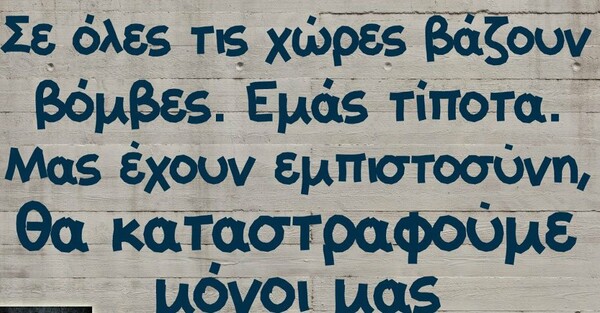 Σε όλες τις χώρες βάζουν
βόμβες. Εμάς τίποτα.
Μας έχουν εμπιστοσύνη,
θα καταστραφούμε
μόνοι μας